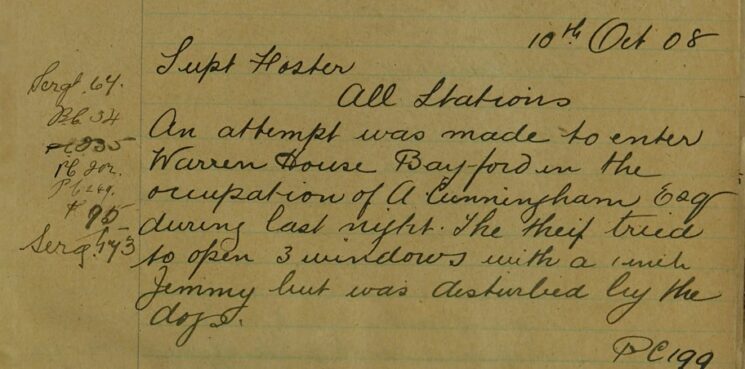 10th Oct 08
Supt Foster
All Stations
An attempt was made to enter
Warren House Bayford in the
occupation of A Cunningham Esq
during last night. The theif tried
to open 3 windows with a 1 inch
Jemmy but was disturbed by the
dogs.
PC 199
Sergt. 64.
P.C. 34
235
PC 202.
PC 249.
" 95
Sergt. 173